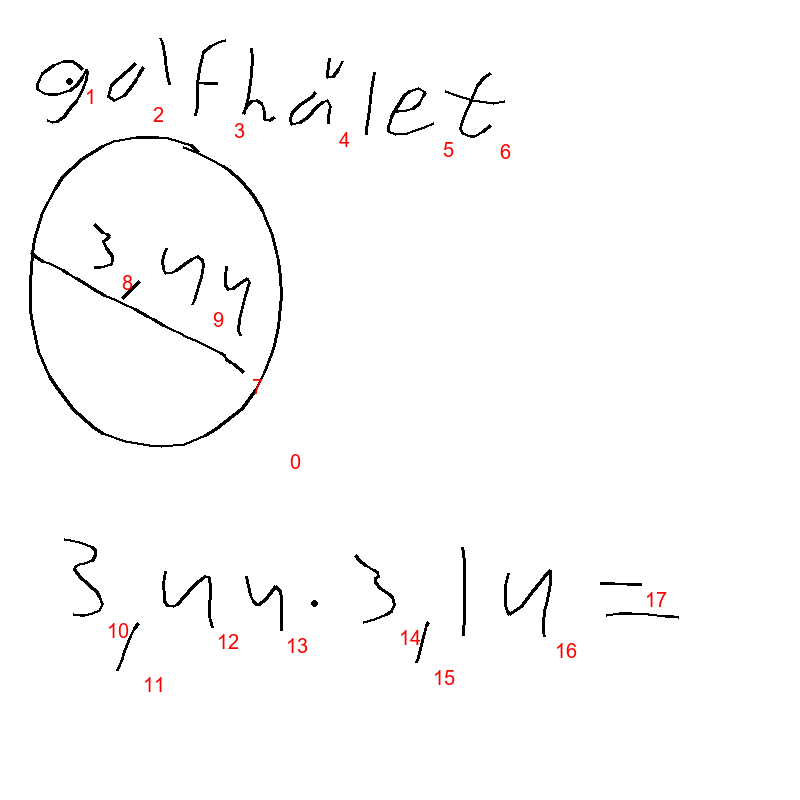 golfhålet
1 2 3 4 5 6
3,44
8 9
7
0
3,44·3,14=
10 11 12 13 14 15 16 17